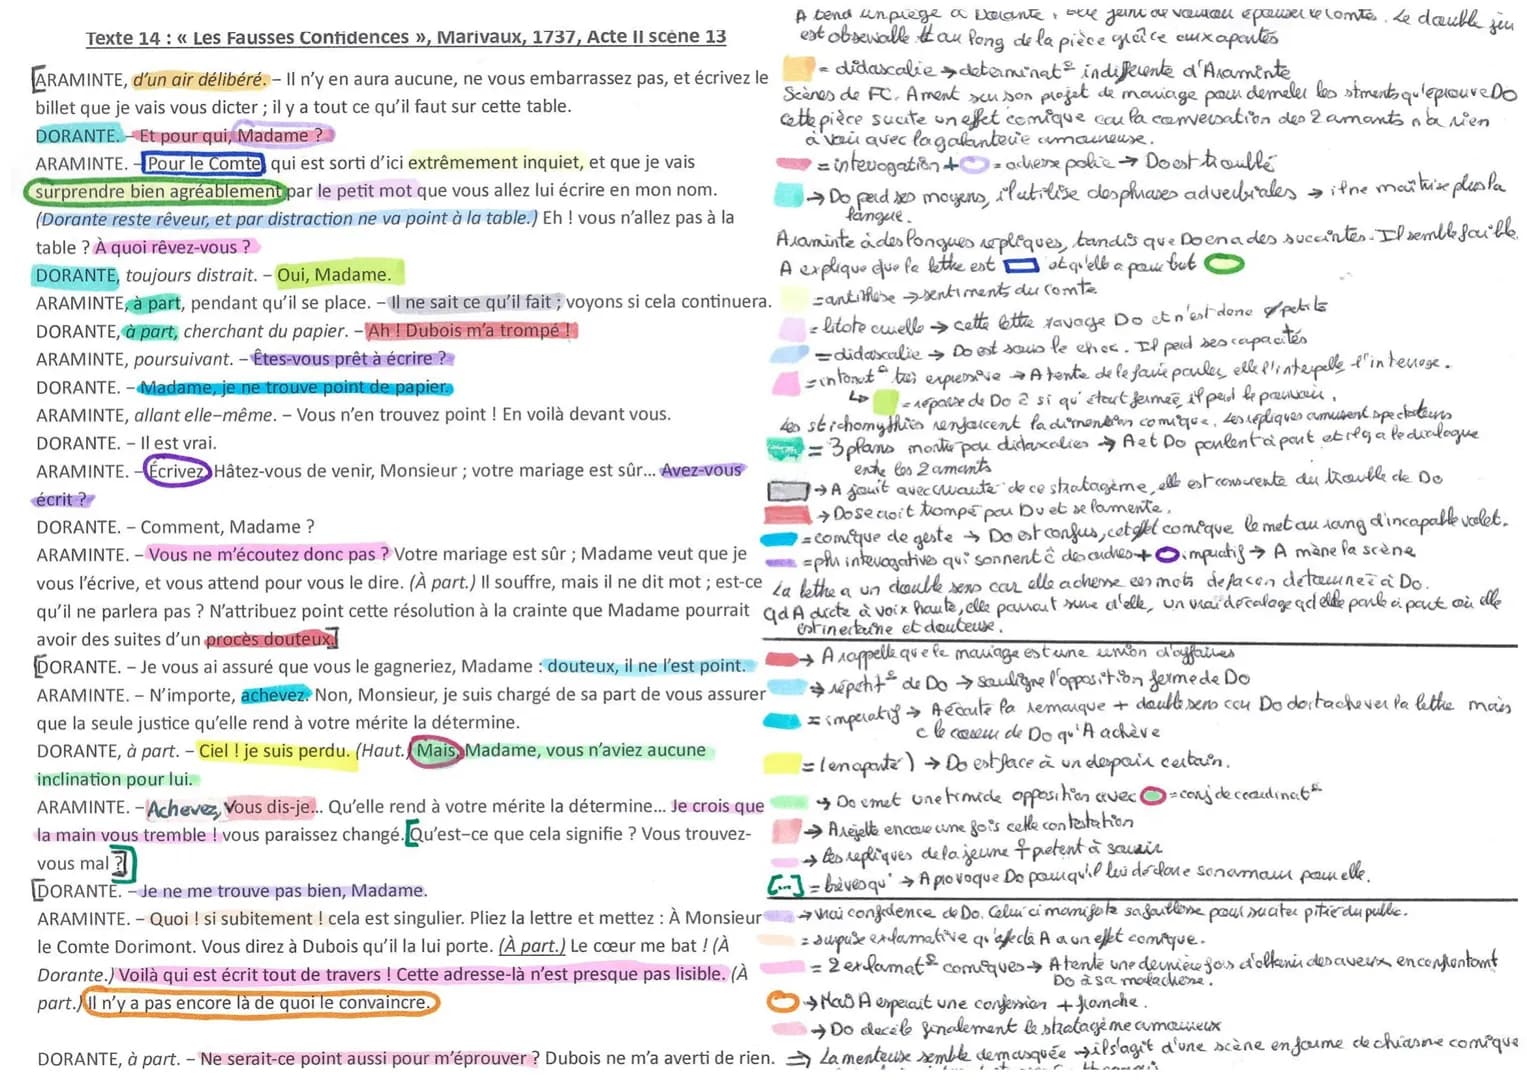 Texte 14 : « Les Fausses Confidences », Marivaux, 1737, Acte II scène 13
ARAMINTE, d'un air délibéré. – Il n'y en aura aucune, ne vous embarrassez pas, et écrivez le
billet que je vais vous dicter ; il y a tout ce qu'il faut sur cette table.
DORANTE. – Et pour qui, Madame ?
ARAMINTE. – Pour le Comte, qui est sorti d'ici extrêmement inquiet, et que je vais
surprendre bien agréablement par le petit mot que vous allez lui écrire en mon nom.
(Dorante reste rêveur, et par distraction ne va point à la table.) Eh ! vous n'allez pas à la
table ? À quoi rêvez-vous ?
DORANTE, toujours distrait. – Oui, Madame.
ARAMINTE, à part, pendant qu'il se place. – Il ne sait ce qu'il fait ; voyons si cela continuera.
DORANTE, à part, cherchant du papier. – Ah ! Dubois m'a trompé !
ARAMINTE, poursuivant. – Êtes-vous prêt à écrire ?
DORANTE. – Madame, je ne trouve point de papier.
ARAMINTE, allant elle-même. – Vous n'en trouvez point ! En voilà devant vous.
DORANTE. – Il est vrai.
ARAMINTE. – Écrivez. Hâtez-vous de venir, Monsieur ; votre mariage est sûr... Avez-vous
écrit ?
DORANTE. – Comment, Madame ?
ARAMINTE. – Vous ne m'écoutez donc pas ? Votre mariage est sûr ; Madame veut que je
vous l'écrive, et vous attend pour vous le dire. (À part.) Il souffre, mais il ne dit mot ; est-ce
qu'il ne parlera pas ? N'attribuez point cette résolution à la crainte que Madame pourrait
avoir des suites d'un procès douteux.]
[DORANTE. – Je vous ai assuré que vous le gagneriez, Madame : douteux, il ne l'est point.
ARAMINTE. – N'importe, achevez. Non, Monsieur, je suis chargé de sa part de vous assurer
que la seule justice qu'elle rend à votre mérite la détermine.
DORANTE, à part. – Ciel ! je suis perdu. (Haut.) Mais, Madame, vous n'aviez aucune
inclination pour lui.
ARAMINTE. – Achevez, vous dis-je... Qu'elle rend à votre mérite la détermine... Je crois que
la main vous tremble ! vous paraissez changé. [Qu'est-ce que cela signifie ? Vous trouvez-
vous mal ?]
[DORANTE. – Je ne me trouve pas bien, Madame.
ARAMINTE. – Quoi ! si subitement ! cela est singulier. Pliez la lettre et mettez : À Monsieur
le Comte Dorimont. Vous direz à Dubois qu'il la lui porte. (À part.) Le cœur me bat ! (À
Dorante.) Voilà qui est écrit tout de travers ! Cette adresse-là n'est presque pas lisible. (À
part.) Il n'y a pas encore là de quoi le convaincre.
DORANTE, à part. – Ne serait-ce point aussi pour m'éprouver ? Dubois ne m'a averti de rien.
A tend un piège à Dorante, elle feint de vouloir épouser le comte. Le double jeu
est observable tt au long de la pièce grâce aux apartés
= didascalie → determinat° indifferente d'Araminte
Scènes de FC. A ment sur son projet de mariage pour demeler les stments qu'éprouve Do
cette pièce sucite un effet comique car la conversation des 2 amants n'a rien
à voir avec la galanterie amoureuse.
= interrogation + = adresse polie → Do est troublé
→ Do perd ses moyens, il utilise des phrases adverbiales → il ne maîtrise plus la
langue.
Araminte à des longues repliques, tandis que Do en a des succintes. Il semble faible.
A explique que la lettre est et qu'elle a pour but
= antithèse → sentiments du comte
= litote cruelle → cette lettre ravage Do et n'est donc petite
= didascalie → Do est sous le choc. Il perd ses capacités
= intonat° très expressive → A tente de le faire parler, elle l'interpelle l'interroge.
↳ = réponse de Do si qu° était fermée, il perd le pouvoir.
Les stichomythies renforcent la dimention comique. Les répliques amusent spectateurs
= 3 plans montré par didascalies → A et Do parlent à part et il y a le dialogue
entre les 2 amants
→ A jouit avec cruauté de ce stratagème, elle est consciente du trouble de Do
→ Do se croit trompé par Du et se lamente.
= comique de geste → Do est confus, cet effet comique le met au rang d'incapable valet.
= phr interrogatives qui sonnent ĉ des ordres + impératif → A mène la scène
La lettre a un double sens car elle adresse ces mots de facon détournée à Do.
Qd A dicte à voix haute, elle parait sure d'elle, un vrai décalage qd elle parle à part où elle
est incertaine et douteuse.
→ A rappelle que le mariage est une union d'affaires
→ répétit° de Do → souligne l'opposition ferme de Do
= imperatif → A écoute la remarque + double sens car Do doit achever la lettre mais
c le coeur de Do qu'A achève
= (en aparté) → Do est face à un despair certain.
→ Do emet une timide opposition avec = conj de coordinat°
→ A rejette encore une fois cette contestation
→ Les repliques de la jeune ♀ pretent à sourir
[...] = brèves qu° → A provoque Do pour qu'il lui déclare son amour pour elle.
→ vrai confidence de Do. Celui ci manifeste sa faiblesse pour susciter pitié du public.
= surprise exclamative qu'affecte A a un effet comique.
= 2 exclamat° comiques → A tente une dernière fois d'obtenir des aveux en confrontant
Do à sa maladresse.
→ Mais A esperait une confession + franche.
→ Do decèle finalement le stratagème amoureux
⇒ La menteuse semble demasquée → il s'agit d'une scène en forme de chiasme comique